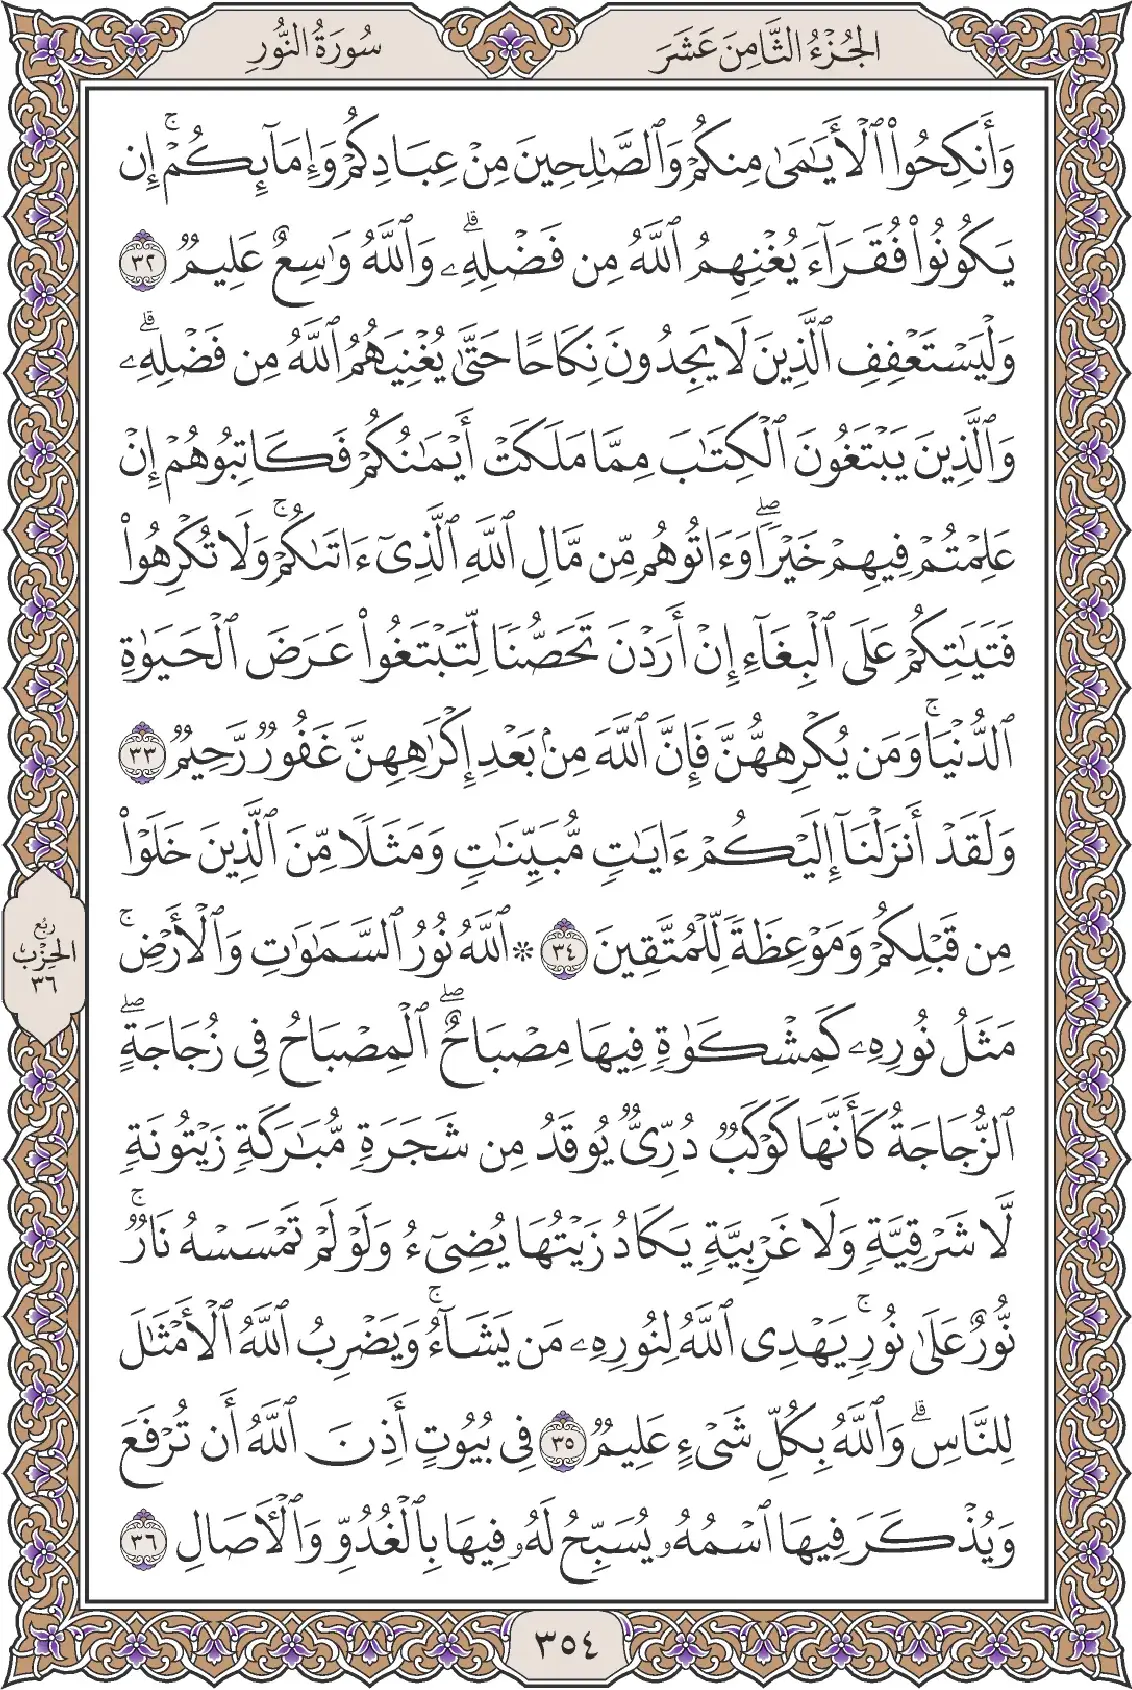 الجُزْءُ الثَّامِنَ عَشَرَ
سُورَةُ النُّورِ
وَأَنكِحُوا۟ ٱلْأَيَـٰمَىٰ مِنكُمْ وَٱلصَّـٰلِحِينَ مِنْ عِبَادِكُمْ وَإِمَآئِكُمْۚ إِن
يَكُونُوا۟ فُقَرَآءَ يُغْنِهِمُ ٱللَّهُ مِن فَضْلِهِۦۗ وَٱللَّهُ وَٰسِعٌ عَلِيمٌ ٣٢
وَلْيَسْتَعْفِفِ ٱلَّذِينَ لَا يَجِدُونَ نِكَاحًا حَتَّىٰ يُغْنِيَهُمُ ٱللَّهُ مِن فَضْلِهِۦۗ
وَٱلَّذِينَ يَبْتَغُونَ ٱلْكِتَـٰبَ مِمَّا مَلَكَتْ أَيْمَـٰنُكُمْ فَكَاتِبُوهُمْ إِنْ
عَلِمْتُمْ فِيهِمْ خَيْرًاۖ وَءَاتُوهُم مِّن مَّالِ ٱللَّهِ ٱلَّذِىٓ ءَاتَىٰكُمْۚ وَلَا تُكْرِهُوا۟
فَتَيَـٰتِكُمْ عَلَى ٱلْبِغَآءِ إِنْ أَرَدْنَ تَحَصُّنًا لِّتَبْتَغُوا۟ عَرَضَ ٱلْحَيَوٰةِ
ٱلدُّنْيَاۚ وَمَن يُكْرِههُّنَّ فَإِنَّ ٱللَّهَ مِنۢ بَعْدِ إِكْرَٰهِهِنَّ غَفُورٌ رَّحِيمٌ ٣٣
وَلَقَدْ أَنزَلْنَآ إِلَيْكُمْ ءَايَـٰتٍ مُّبَيِّنَـٰتٍ وَمَثَلًا مِّنَ ٱلَّذِينَ خَلَوْا۟
مِن قَبْلِكُمْ وَمَوْعِظَةً لِّلْمُتَّقِينَ ٣٤ * ٱللَّهُ نُورُ ٱلسَّمَـٰوَٰتِ وَٱلْأَرْضِۚ
رُبْعُ
الحِزْبِ
٣٦
مَثَلُ نُورِهِۦ كَمِشْكَوٰةٍ فِيهَا مِصْبَاحٌۖ ٱلْمِصْبَاحُ فِى زُجَاجَةٍۖ
ٱلزُّجَاجَةُ كَأَنَّهَا كَوْكَبٌ دُرِّىٌّ يُوقَدُ مِن شَجَرَةٍ مُّبَـٰرَكَةٍ زَيْتُونَةٍ
لَّا شَرْقِيَّةٍ وَلَا غَرْبِيَّةٍ يَكَادُ زَيْتُهَا يُضِىٓءُ وَلَوْ لَمْ تَمْسَسْهُ نَارٌۚ
نُّورٌ عَلَىٰ نُورٍۚ يَهْدِى ٱللَّهُ لِنُورِهِۦ مَن يَشَآءُۚ وَيَضْرِبُ ٱللَّهُ ٱلْأَمْثَـٰلَ
لِلنَّاسِۗ وَٱللَّهُ بِكُلِّ شَىْءٍ عَلِيمٌ ٣٥ فِى بُيُوتٍ أَذِنَ ٱللَّهُ أَن تُرْفَعَ
وَيُذْكَرَ فِيهَا ٱسْمُهُۥ يُسَبِّحُ لَهُۥ فِيهَا بِٱلْغُدُوِّ وَٱلْـَٔاصَالِ ٣٦
٣٥٤